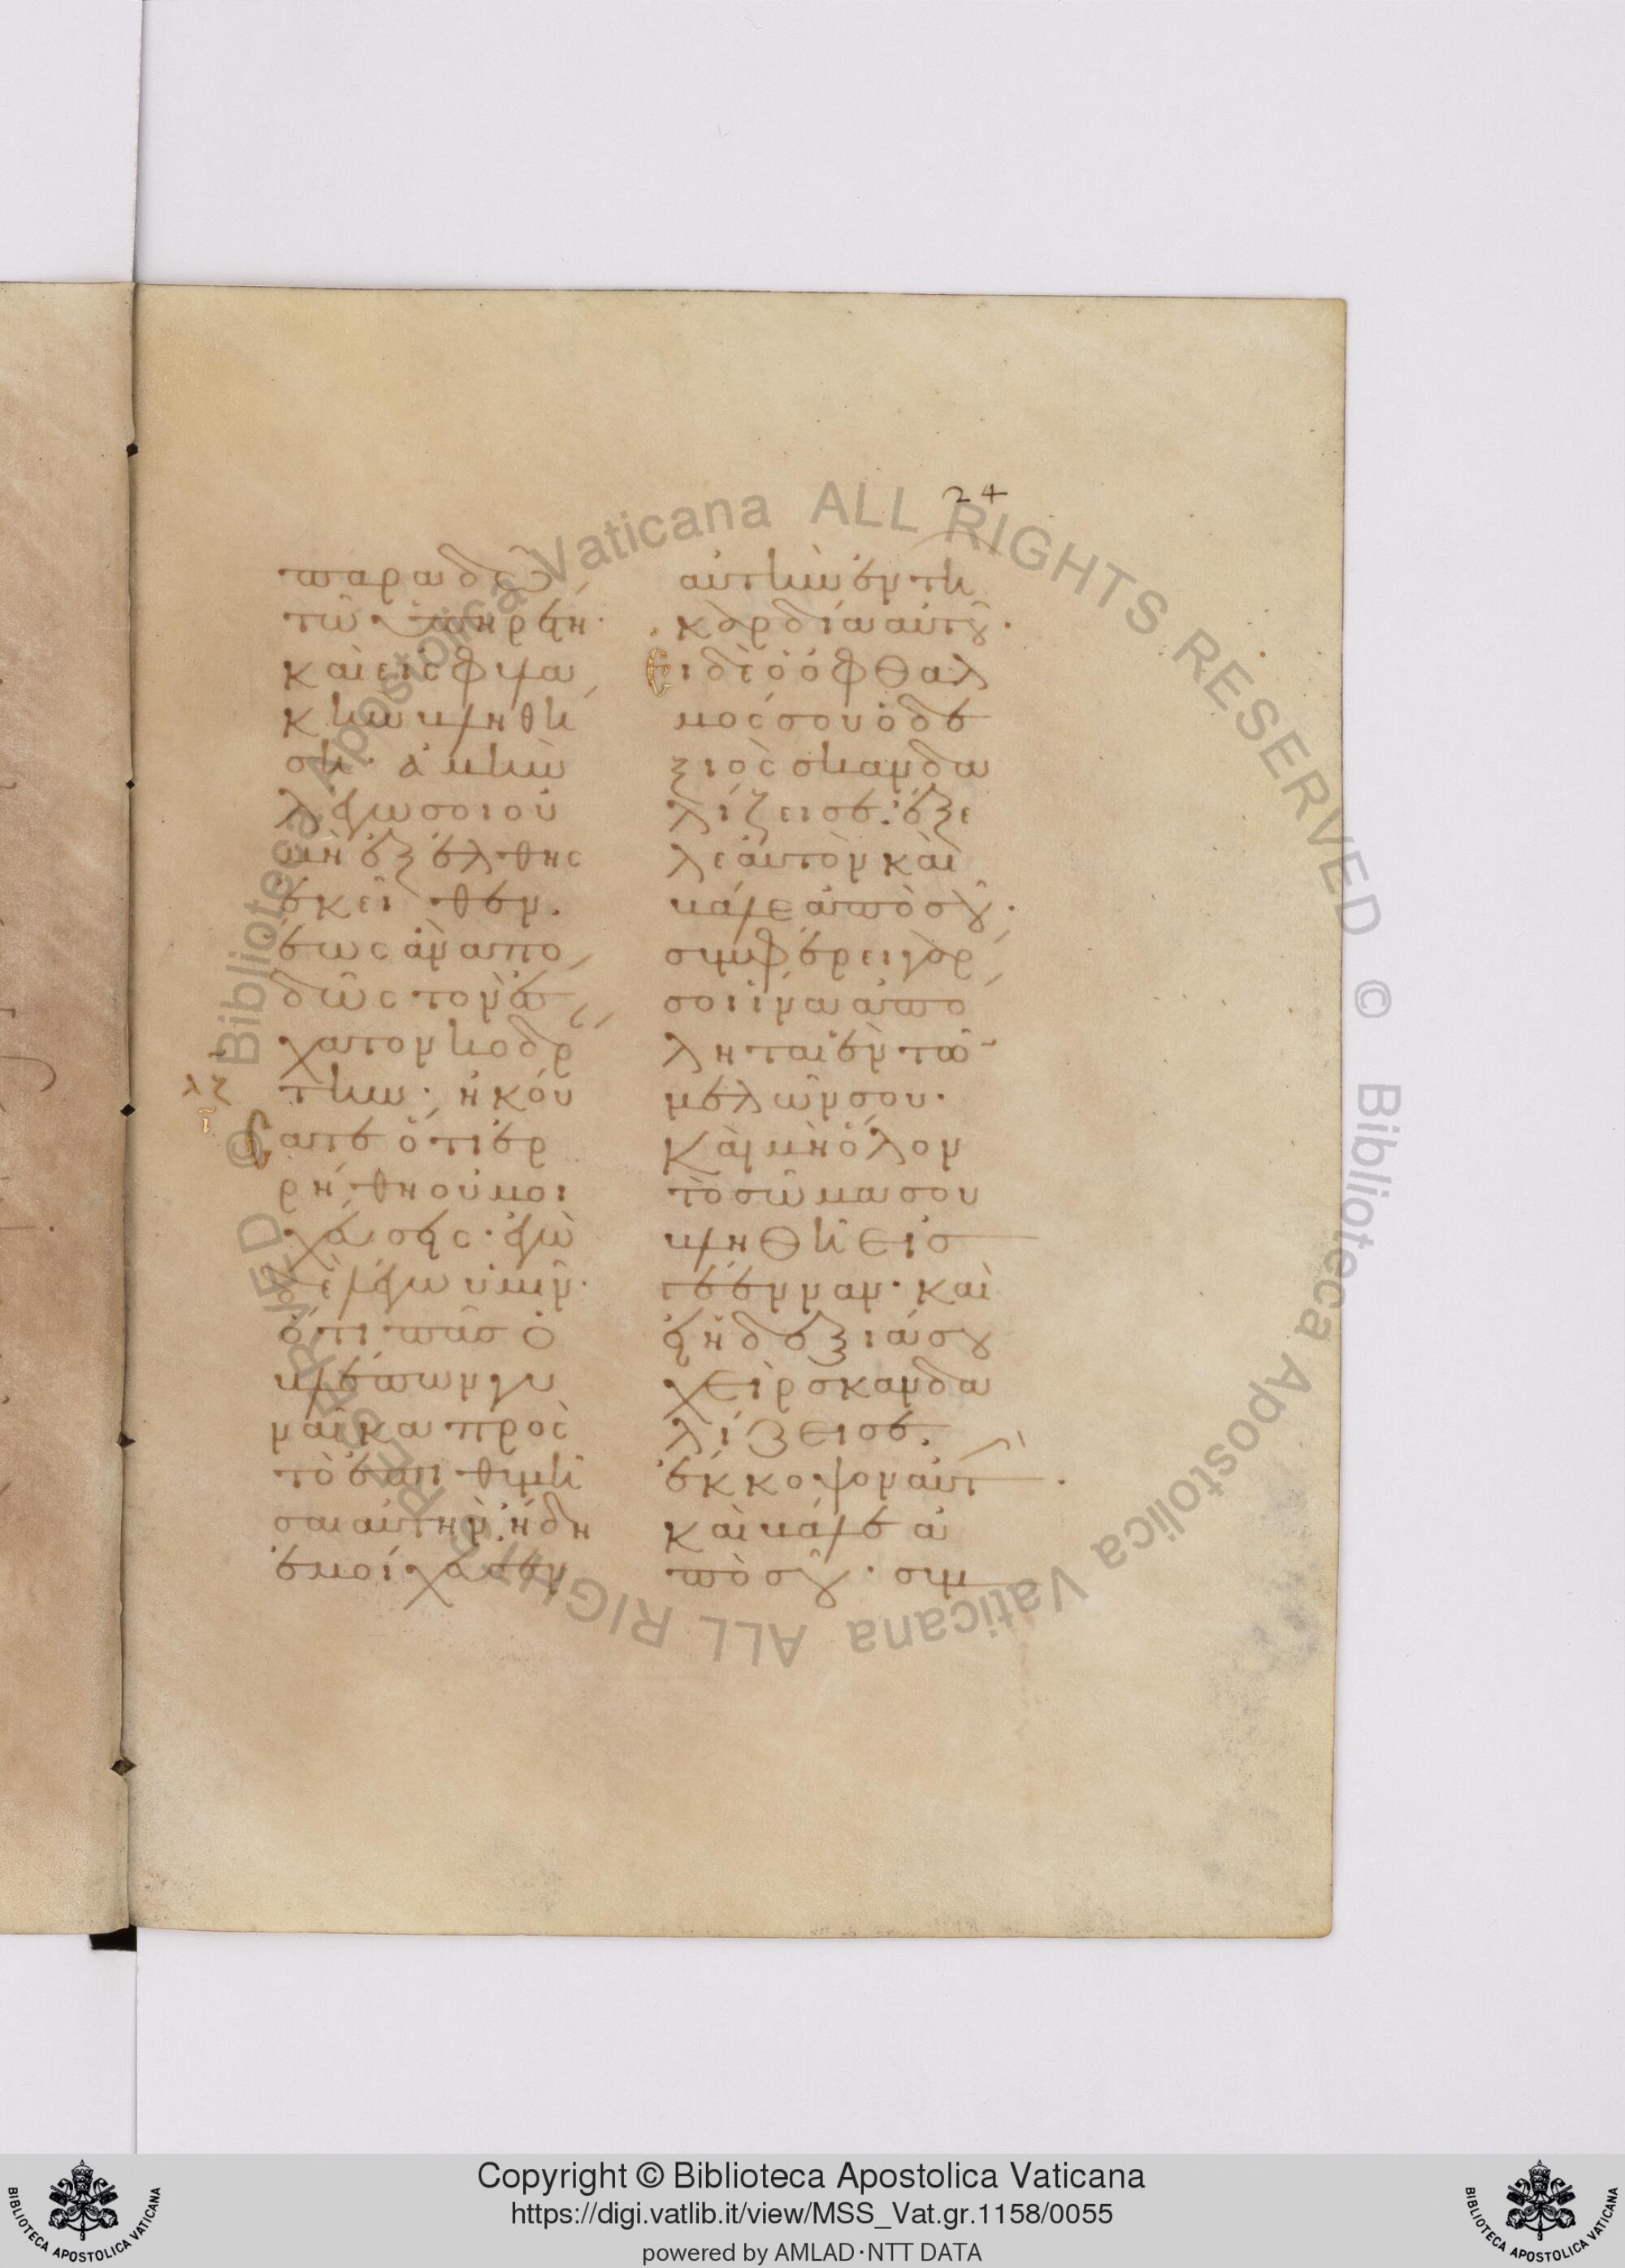 24
παραδῶ
τῶ ὑπηρέτη·
καὶ εἰς φυλα
κὴν βληθή
ση· ἀμὴν
λέγω σοι οὐ
μὴ ἐξέλθης
ἐκεῖθεν·
ἕως ἂν ἀπο
δῶς τὸν ἔ
σχατον κοδρ
άντην· ἠκού
σατε ὅτι ἐρ
ρήθη οὐ μοι
χεύσεις· ἐγὼ
δὲ λέγω ὑμῖν·
ὅτι πᾶσ ὁ
βλέπων γυ
ναῖκα πρὸς
τὸ ἐπιθυμῆ
σαι αὐτὴν· ἤδη
ἐμοίχευσεν
λζ
αὐτὴν ἐν τῆ
καρδία αὐτοῦ·
Εἰ δὲ ὁ ὀφθαλ
μός σου ὁ δε
ξιὸς σκανδα
λίζει σε· ἔξε
λε αὐτὸν καὶ
βάλε ἀπὸ σοῦ·
συμφέρει γάρ
σοι ἵνα ἀπό
ληται ἓν τῶν
μελῶν σου·
Καὶ μὴ ὅλον
τὸ σῶμα σου
βληθῆ εἰσ
γέενναν· καὶ
εἰ ἡ δεξιά σου
χεὶρ σκανδα
λίζει σε·
ἔκκοψον αὐτὴν·
καὶ βάλε ἀ
πὸ σοῦ· συμ
Biblioteca Apostolica Vaticana ALL RIGHTS RESERVED ©
Biblioteca Apostolica Vaticana ALL RIGHTS RESERVED ©
Copyright © Biblioteca Apostolica Vaticana
https://digi.vatlib.it/view/MSS_Vat.gr.1158/0055
powered by AMLAD·NTT DATA
BIBLIOTECA APOSTOLICA VATICANA
BIBLIOTECA APOSTOLICA VATICANA